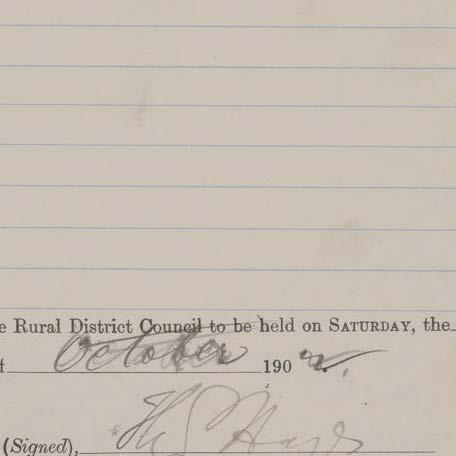 e Rural District Council to be held on SATURDAY, the
October 190 2.
(Signed),